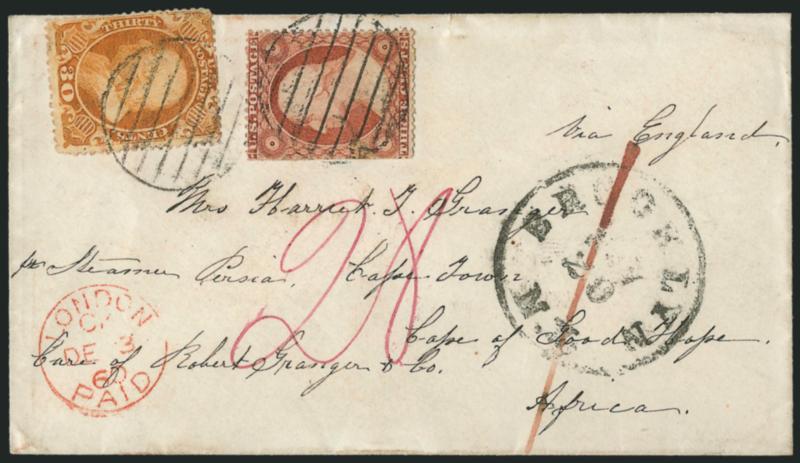 THIRTY
30
CENTS
U.S. POSTAGE
via England.
Mrs Harriet T. Granger
pr Steamer Persia,
Cape Town
Cape of Good Hope.
Africa.
Care of Robert Granger & Co.
28
BROOKLYN
N.Y.
LONDON
DE 3
60
PAID